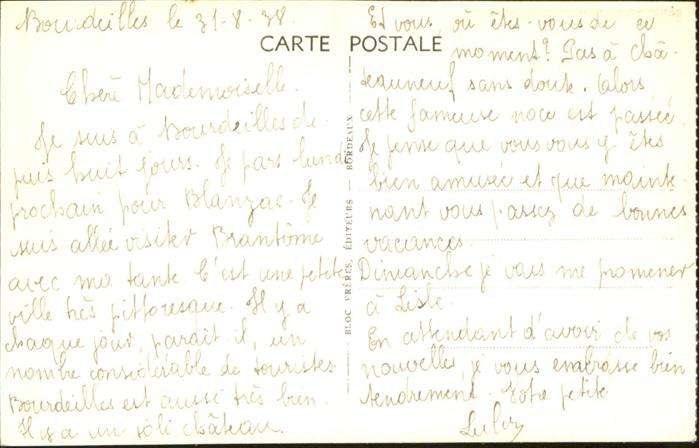 Bourdeilles le 31-8-38
CARTE POSTALE
Chère Mademoiselle.
Je suis à Bourdeilles de-
puis huit jours. Je pars lundi
prochain pour Blanzac. Je
suis allée visiter Brantôme
avec ma tante C'est une petite
ville très pittoresque. Il y a
chaque jour, paraît il, un
nombre considérable de touristes
Bourdeilles est aussi très bien.
Il y a un joli château.
BLOC FRÈRES, ÉDITEURS - BORDEAUX
Et vous, où êtes-vous de ce
moment? Pas à Châ-
teauneuf sans doute. Alors
cette fameuse noce est passée.
Je pense que vous vous y êtes
bien amusée et que mainte-
nant vous passez de bonnes
vacances.
Dimanche je vais me promener
à Lisle.
En attendant d'avoir de vos
nouvelles, je vous embrasse bien
tendrement. Votre petite